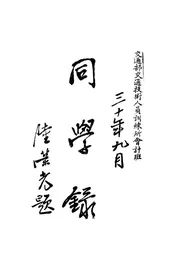 交通部交通技術人員訓練所會計班
三十年九月
同學錄
陸榮光題